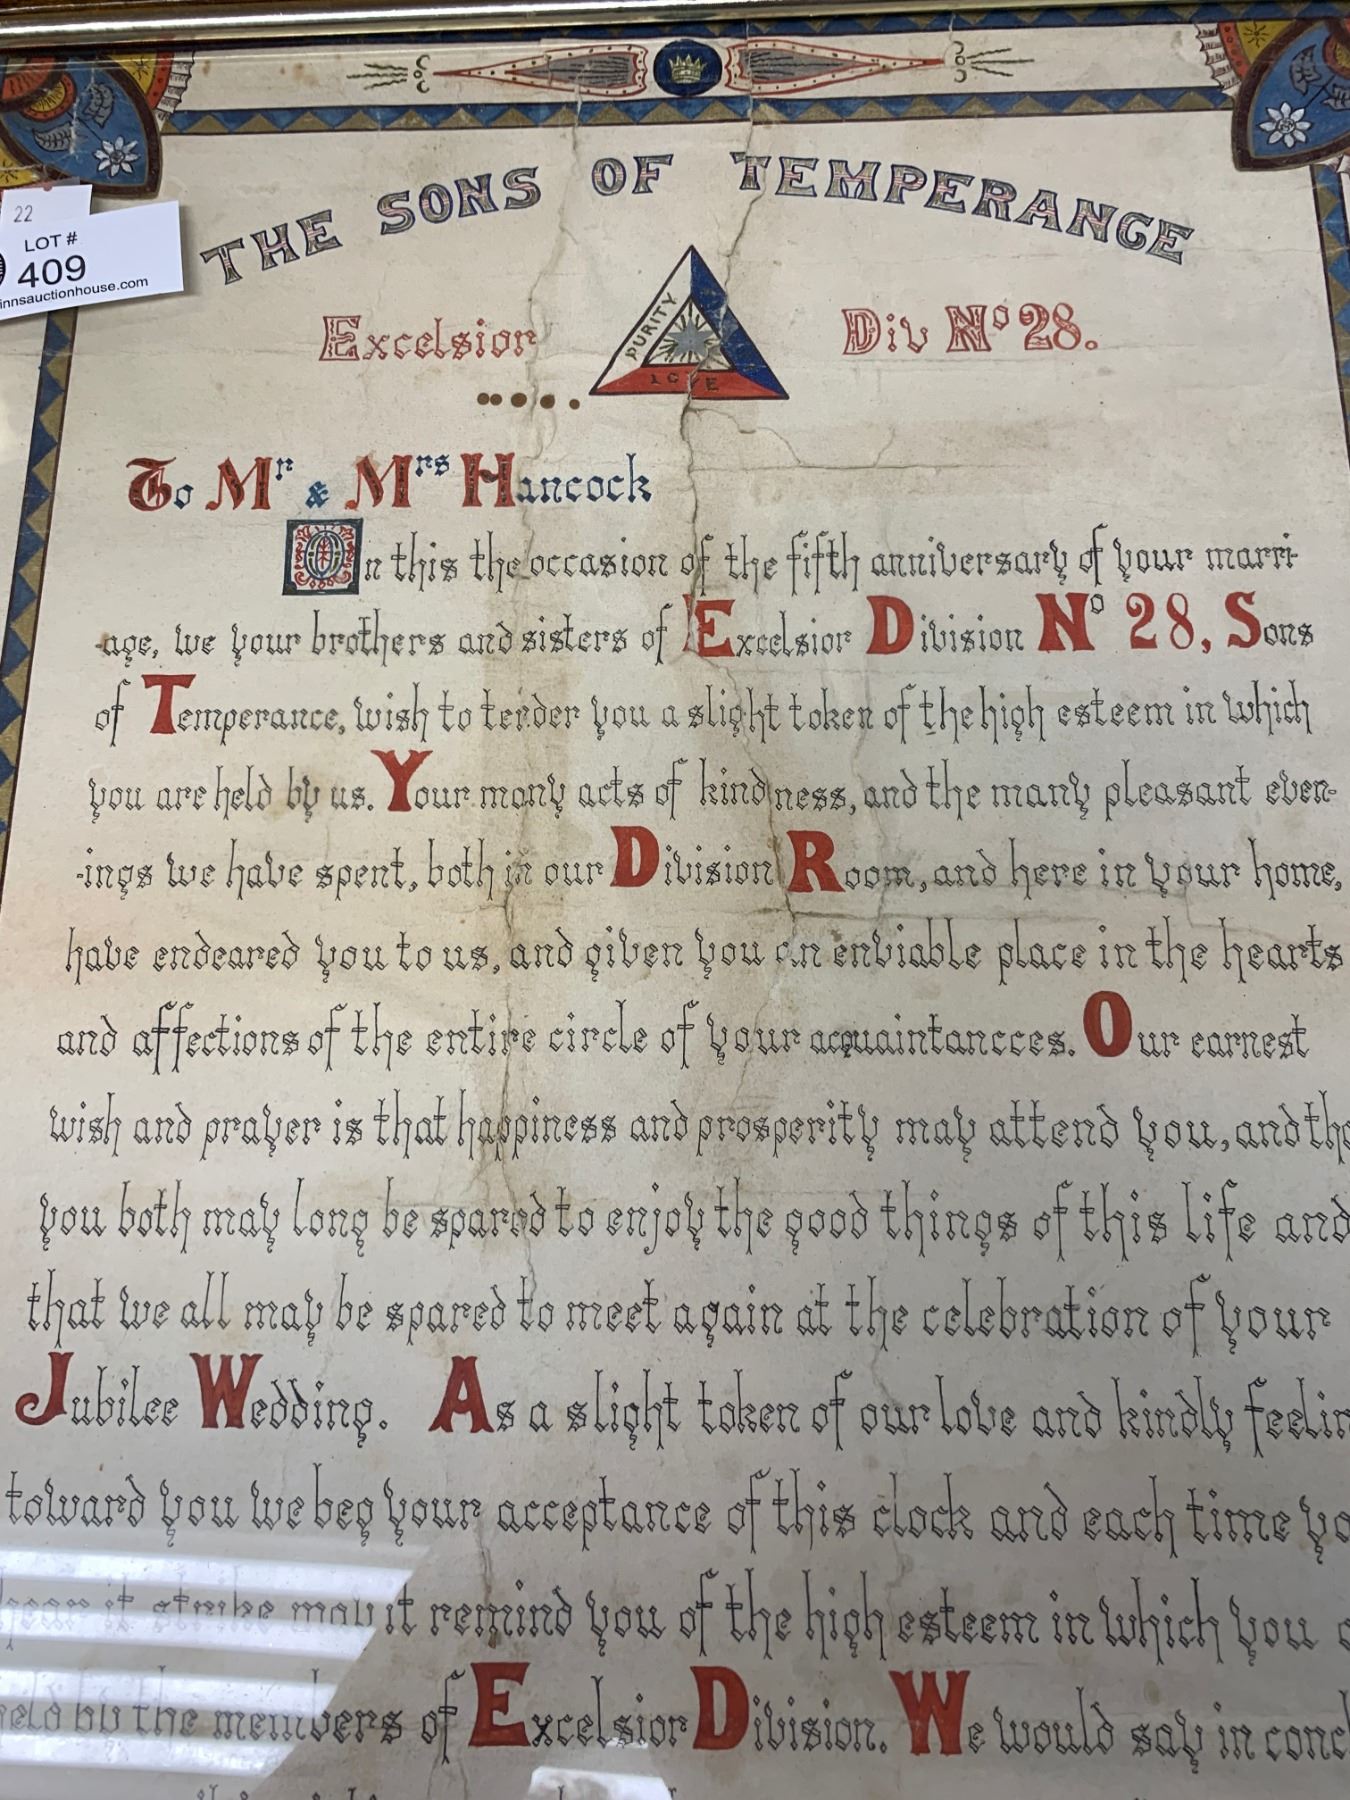 22
LOT #
409
innsauctionhouse.com
THE SONS OF TEMPERANCE
Excelsior
PURITY
LOVE
Div No 28.
To Mr & Mrs Hancock
On this the occasion of the fifth anniversary of your marri-
-age, we your brothers and sisters of Excelsior Division No 28, Sons
of Temperance, wish to tender you a slight token of the high esteem in which
you are held by us. Your many acts of kindness, and the many pleasant even-
-ings we have spent, both in our Division Room, and here in your home,
have endeared you to us, and given you an enviable place in the hearts
and affections of the entire circle of your acquaintancces. Our earnest
wish and prayer is that happiness and prosperity may attend you, and tha
you both may long be spared to enjoy the good things of this life and
that we all may be spared to meet again at the celebration of your
Jubilee Wedding. As a slight token of our love and kindly feelin
toward you we beg your acceptance of this clock and each time yo
hear it strike may it remind you of the high esteem in which you a
held by the members of Excelsior Division. We would say in concl